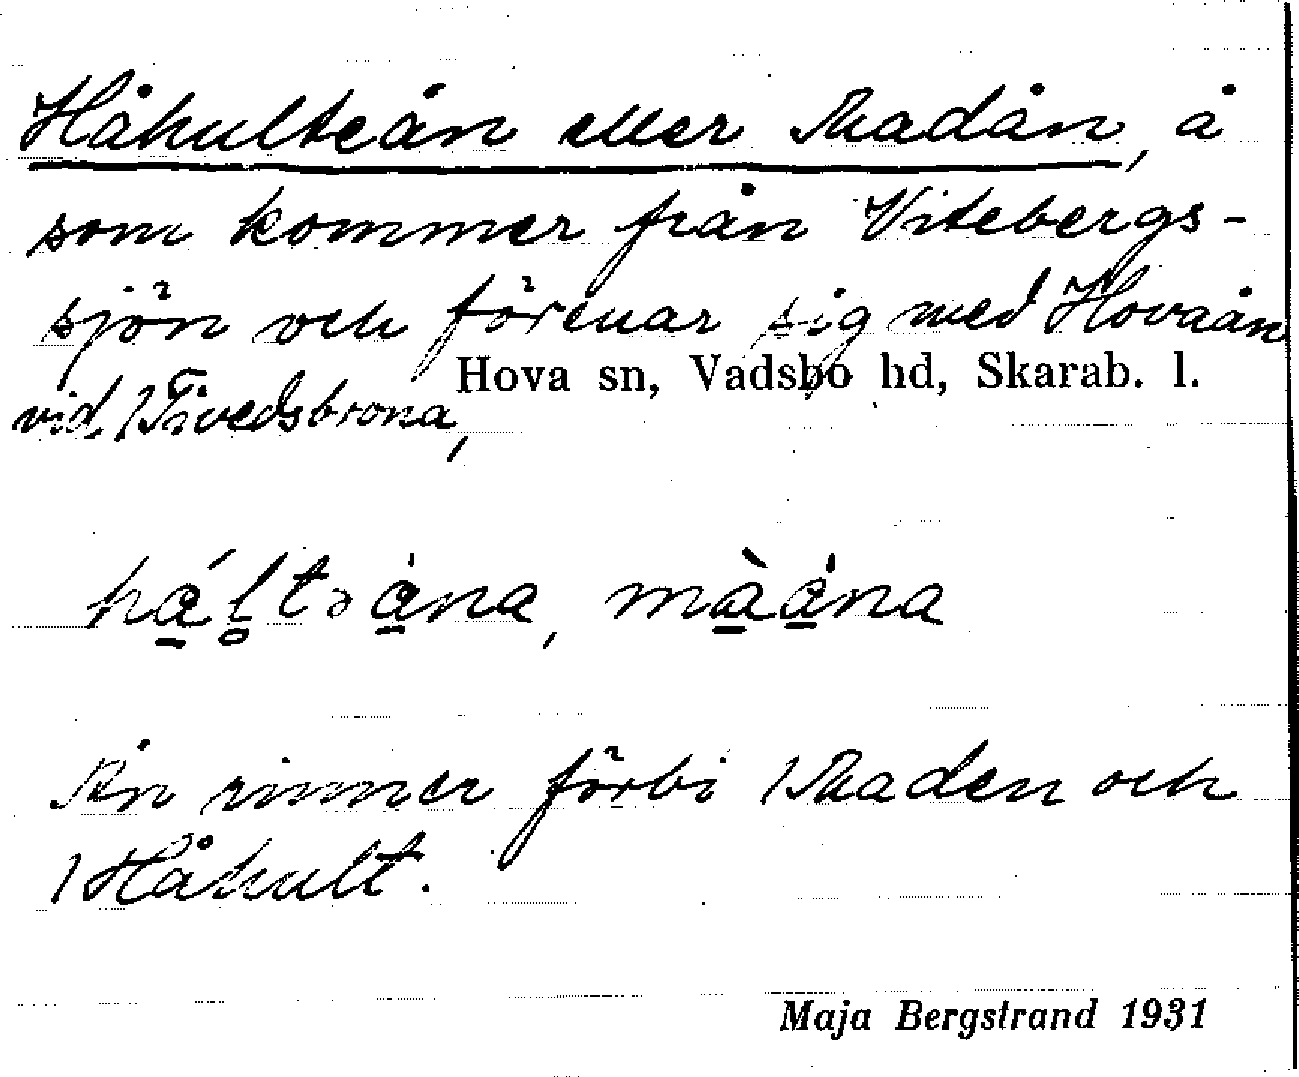 Håhulteån eller Madån, å
som kommer från Vitebergs-
sjön och förenar sig med Hovaån
Hova sn, Vadsbo hd, Skarab. l.
vid /Tivedsbrona,
há̱l̥tə a̱̍na, mà̱a̱̍na
Ån rinner förbi /Maden och
/Håhult.
Maja Bergstrand 1931